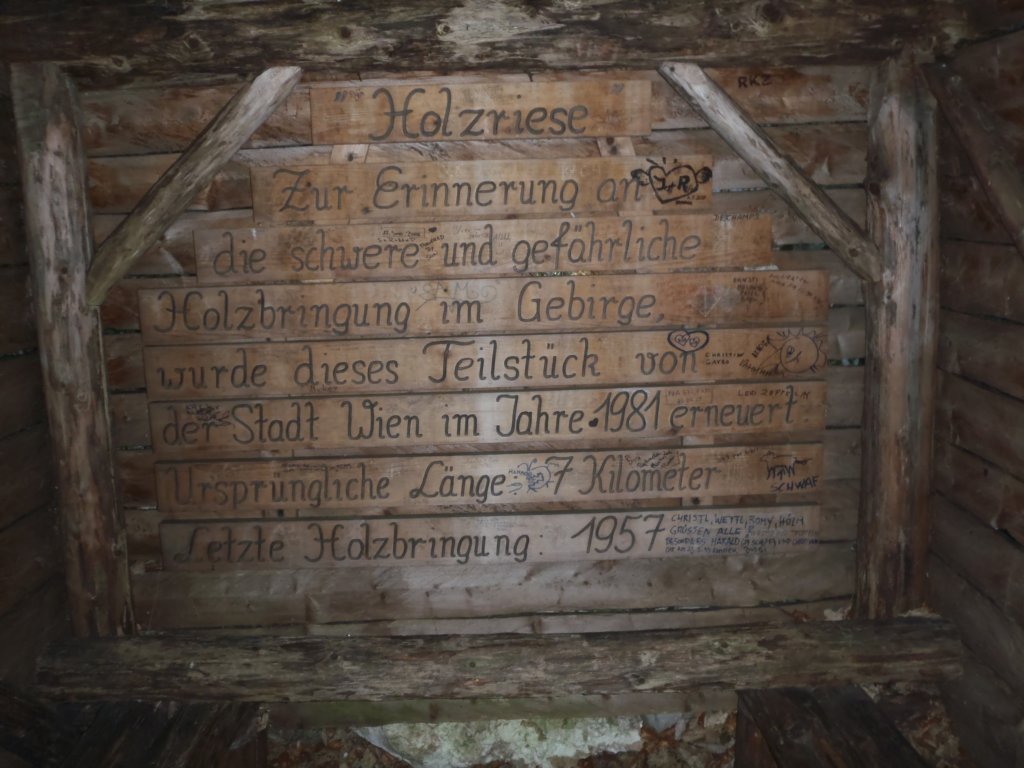 Holzriese
RKZ
Zur Erinnerung an
J+R
DECHAMPS
die schwere und gefährliche
Holzbringung im Gebirge,
wurde dieses Teilstück von
der Stadt Wien im Jahre 1981 erneuert.
Ursprüngliche Länge: 7 Kilometer
SCHWAF
Letzte Holzbringung: 1957
CHRISTL, WETTL, ROMY, HÖLM
GRÜSSEN ALLE